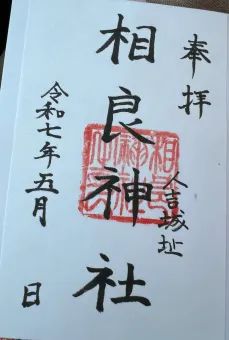 奉拝
人吉城址
相良神社
令和七年五月 日